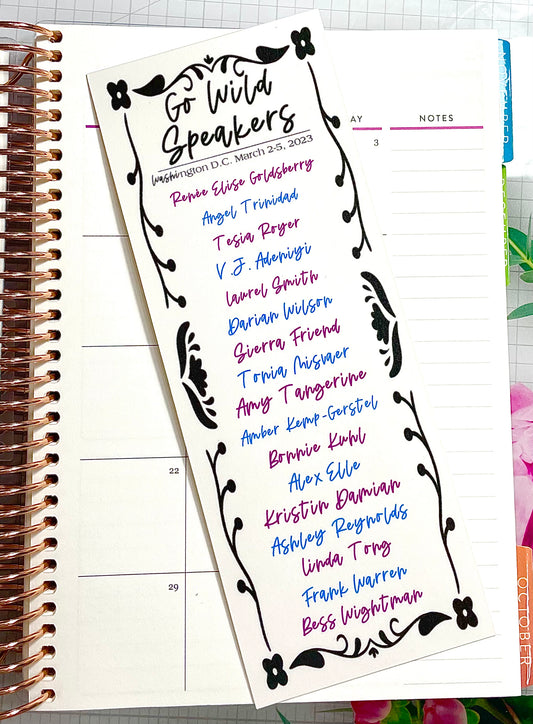 Go Wild
Speakers
Washington D.C. March 2-5, 2023
Renée Elise Goldsberry
Angel Trinidad
Tesia Royer
V.J. Adeniyi
Laurel Smith
Darian Wilson
Sierra Friend
Tonia Misvaer
Amy Tangerine
Amber Kemp-Gerstel
Bonnie Kuhl
Alex Elle
Kristin Damian
Ashley Reynolds
Linda Tong
Frank Warren
Bess Wightman
AY
NOTES
3
22
29
OCTOBER